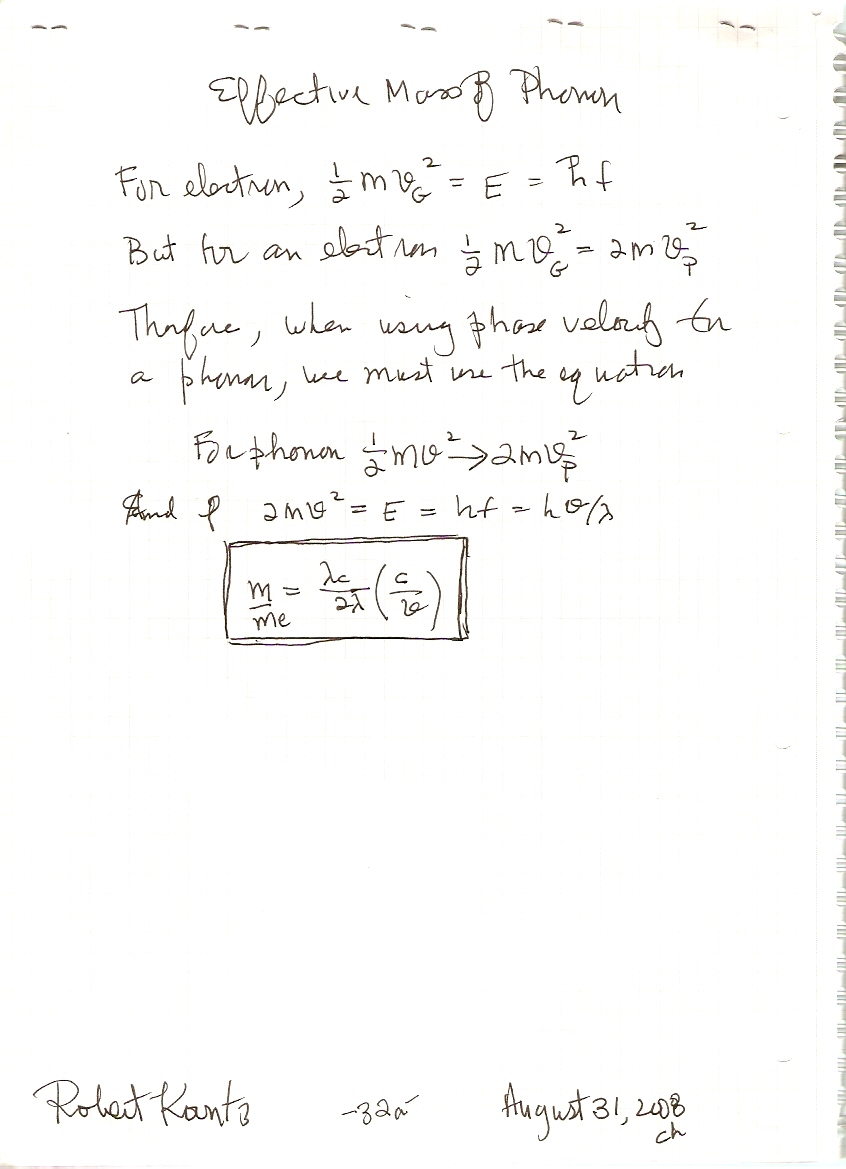 Effective Mass of Phonon
For electron, ½ m v_G² = E = h f
But for an electron ½ m v_G² = 2 m v_p²
Therefore, when using phase velocity for
a phonon, we must use the equation
For phonon ½ m v² → 2 m v_p²
And 2 m v² = E = h f = h v/λ
m/me = λc/2λ (c/v)
Robert -32a August 31, 2008
ch